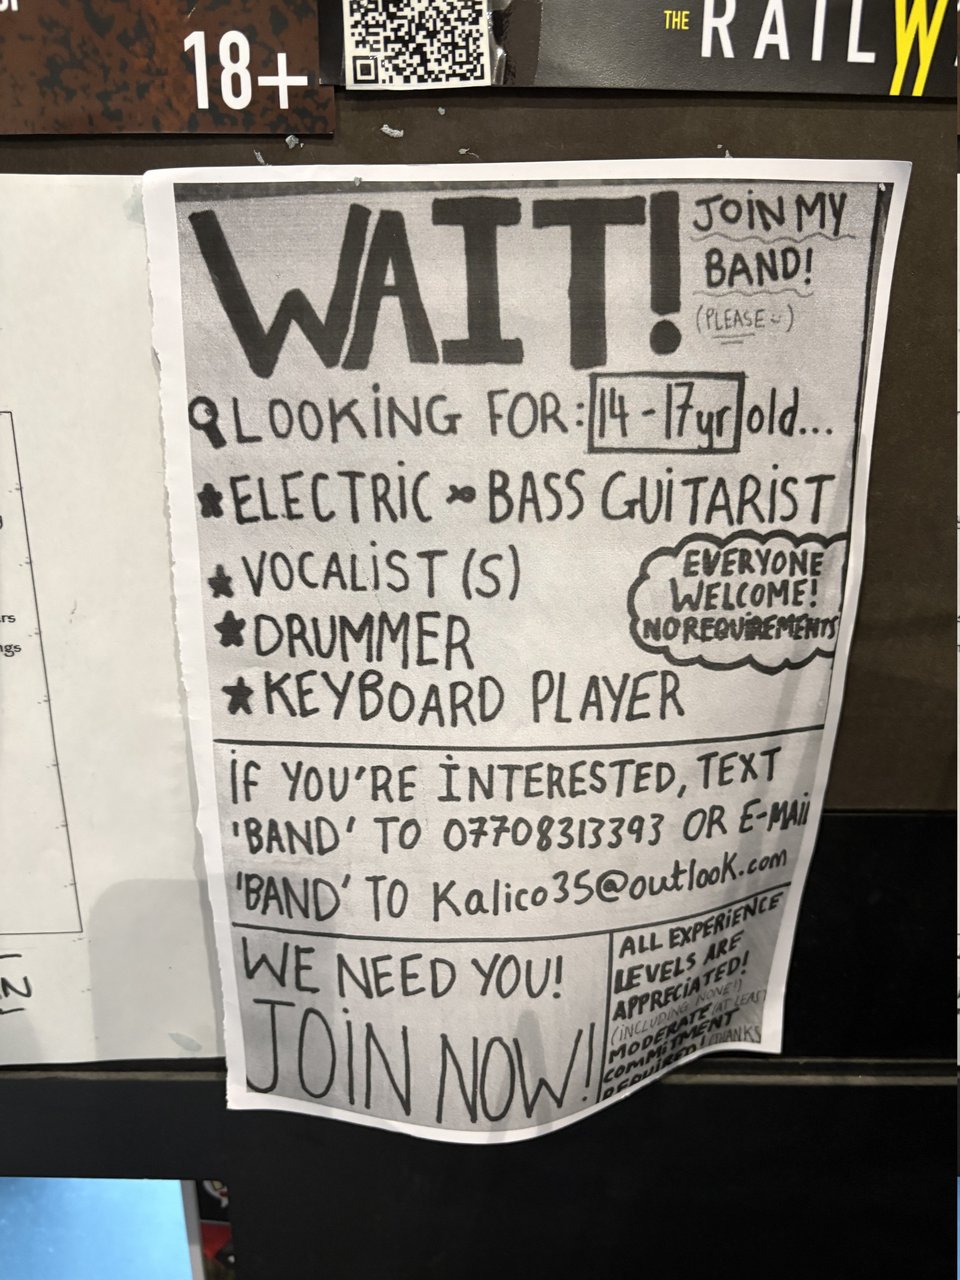 18+
THE RAILW
WAIT!
JOIN MY
BAND!
(PLEASE :))
LOOKING FOR: 14-17yr old...
ELECTRIC BASS GUITARIST
VOCALIST(S)
DRUMMER
KEYBOARD PLAYER
EVERYONE
WELCOME!
NO REQUIREMENTS
IF YOU'RE INTERESTED, TEXT
'BAND' TO 07708313393 OR E-MAIL
'BAND' TO Kalico35@outlook.com
WE NEED YOU!
JOIN NOW!
ALL EXPERIENCE
LEVELS ARE
APPRECIATED!
(INCLUDING NONE!)
MODERATE (AT LEAST)
COMMITMENT
REQUIRED! THANKS
rs
ngs